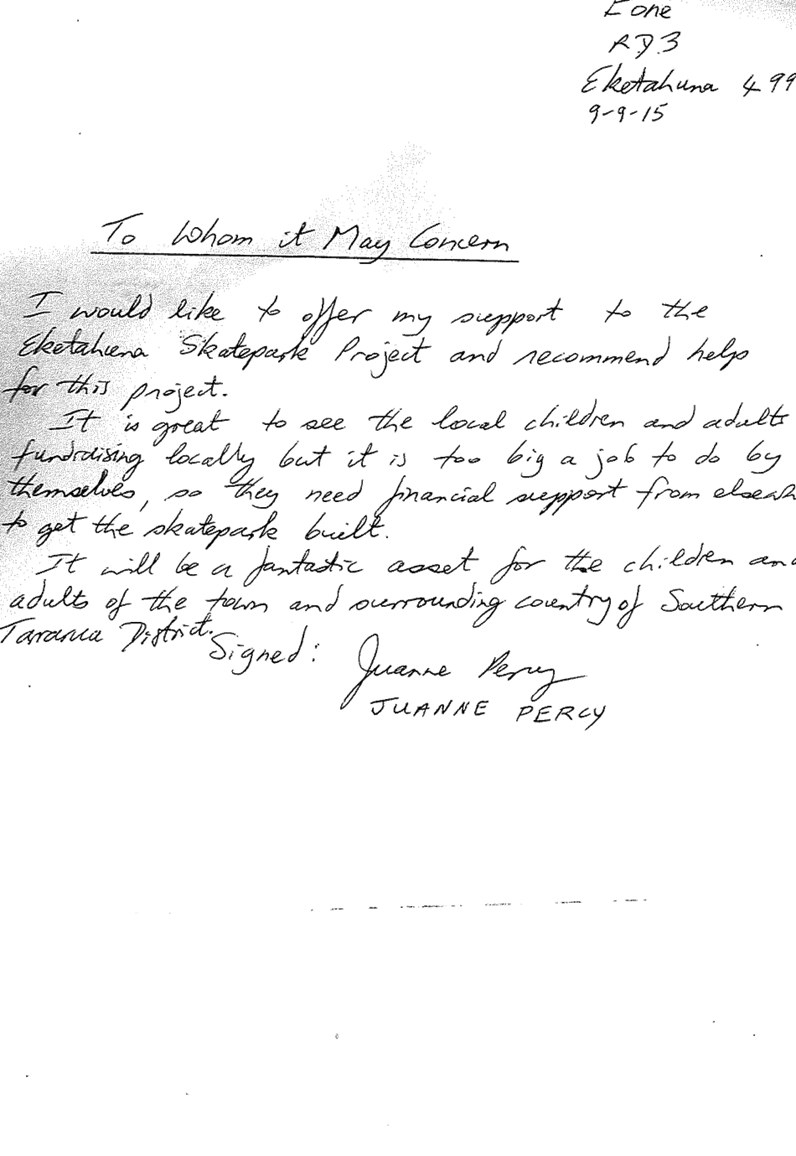 Eone
RD3
Eketahuna 499
9-9-15
To Whom it May Concern
I would like to offer my support to the
Eketahuna Skatepark Project and recommend help
for this project.
It is great to see the local children and adults
fundraising locally but it is too big a job to do by
themselves, so they need financial support from elsewh
to get the skatepark built.
It will be a fantastic asset for the children and
adults of the town and surrounding country of Southern
Tararua District.
Signed: Juanne Percy
JUANNE PERCY